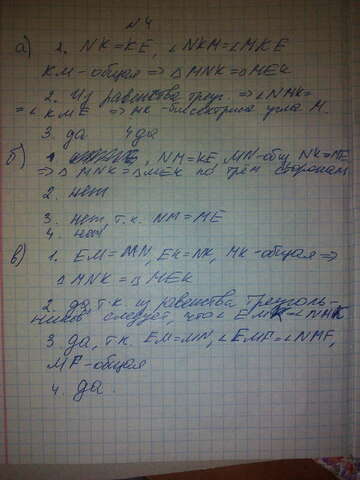 №4
а) 1. NK=KE, ∠NKM=∠MKE
KM-общая ⇒ △MNK=△MEK
2. Из равенства треуг. ⇒ ∠NMK=
=∠KME ⇒ MK-биссектриса угла M.
3. да 4 да
б) 1. , NM=KE, MN-общ, NK=ME
⇒ △MNK=△MEK по трём сторонам
2. нет
3. нет, т.к. NM=ME
4. нет
в) 1. EM=MN, EK=NK, MK-общая ⇒
△MNK=△MEK
2. да т.к из равенства треуголь-
ников следует, что ∠EMK=∠NMK
3. да, т.к. EM=MN, ∠EMF=∠NMF,
MF-общая
4. да.